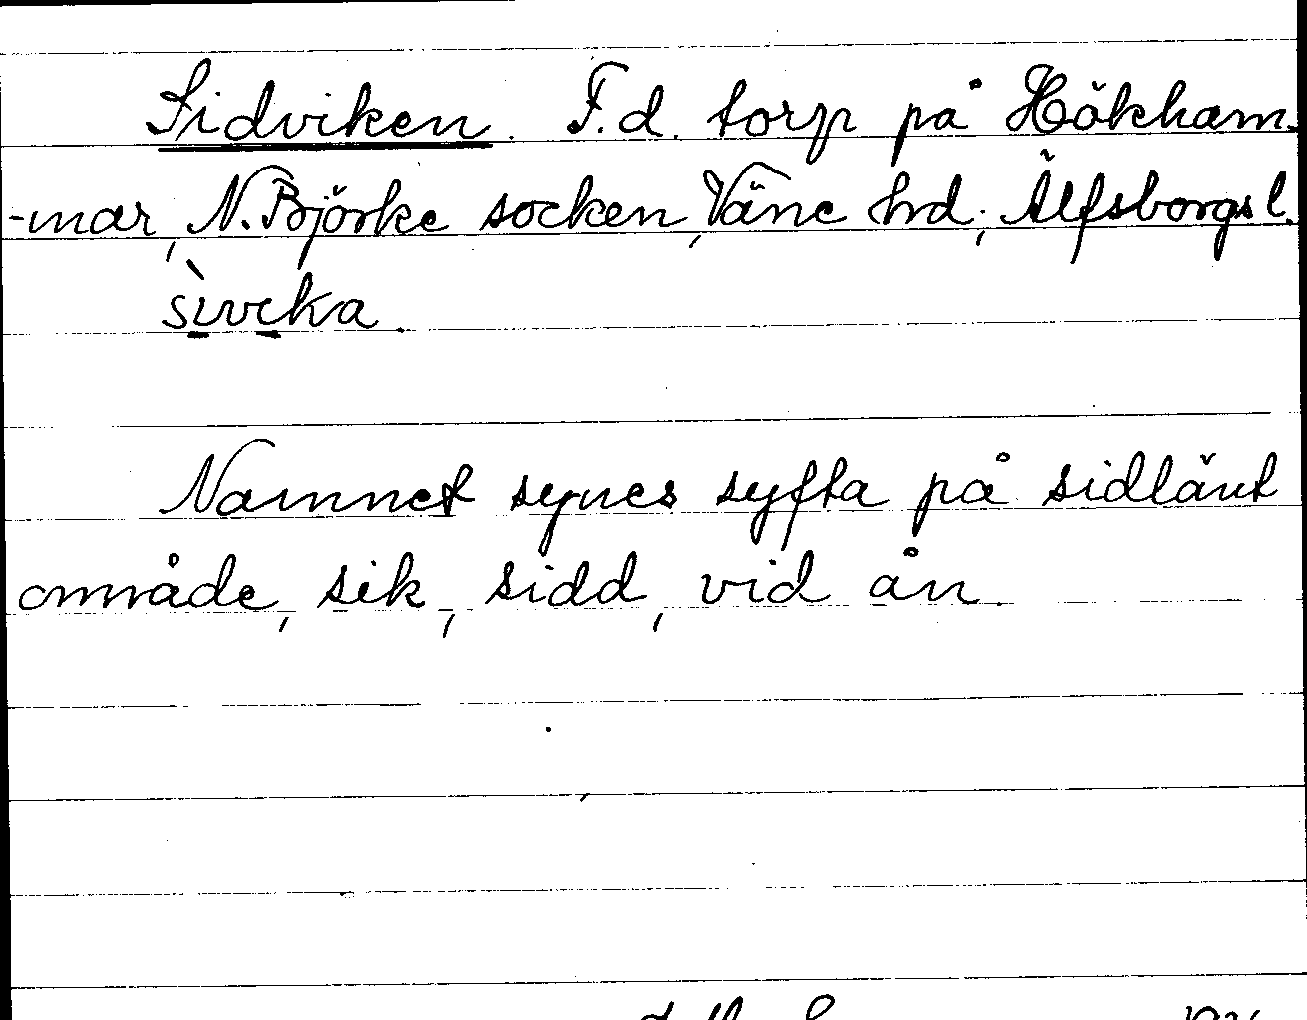 Sidviken. F.d. torp på Hökham-
-mar, N. Björke socken, Väne hd, Älfsborgs l.
sìvika.
Namnet synes syfta på sidlänt
område, sik, sidd, vid ån.